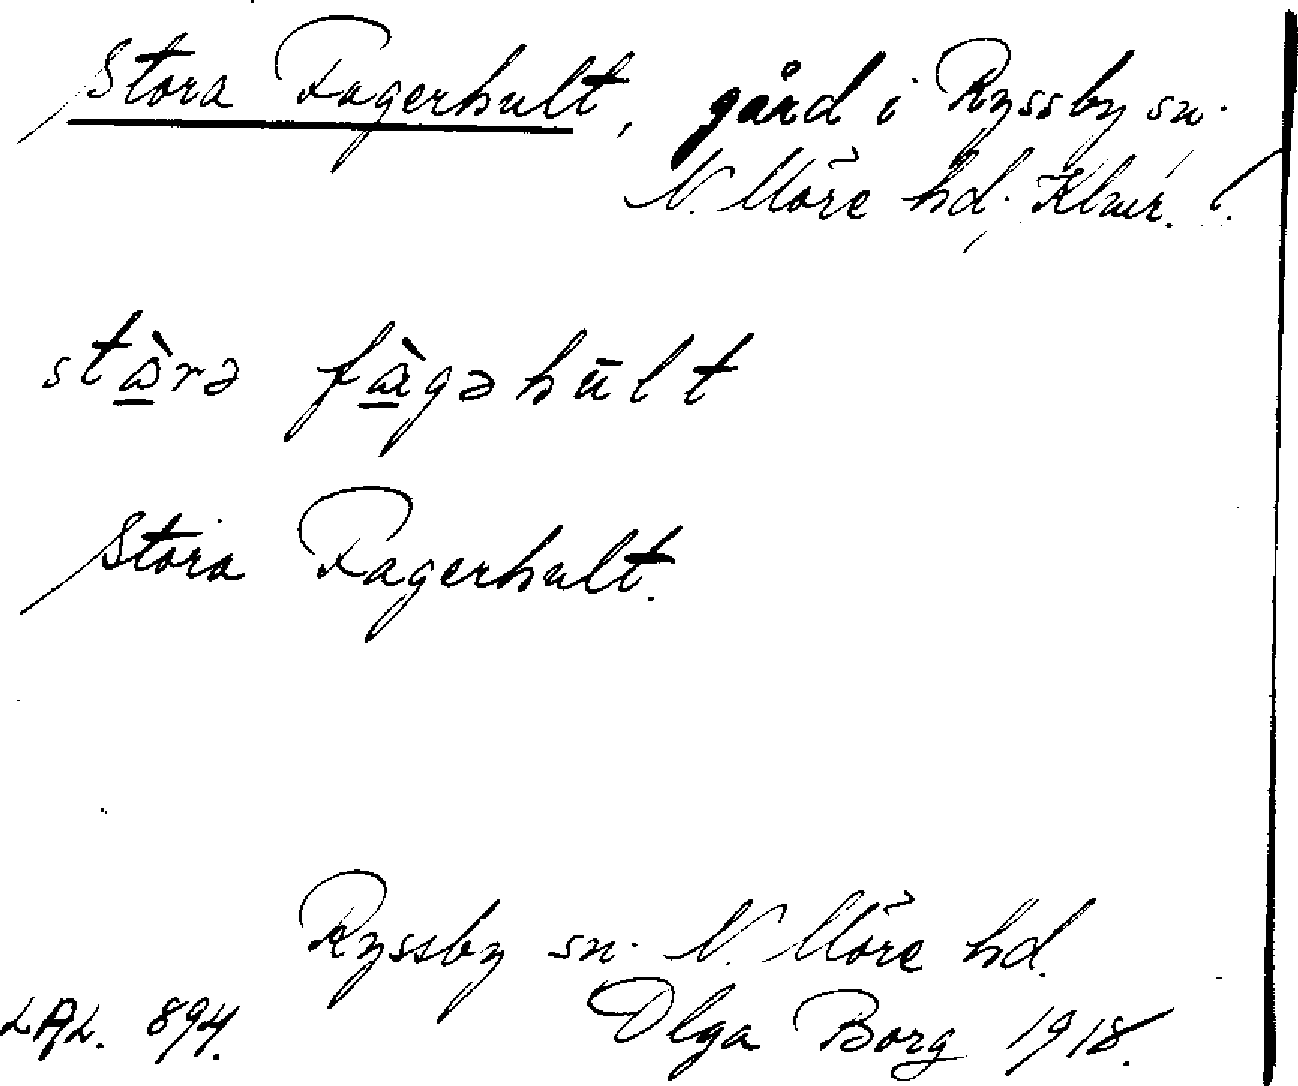 Stora Fagerhult, gård i Ryssby sn.
N. Möre hd. Klmr. l.
fàgəhūlt
Stora Fagerhult.
Ryssby sn. N. Möre hd.
LAL. 894. Olga Borg 1918.